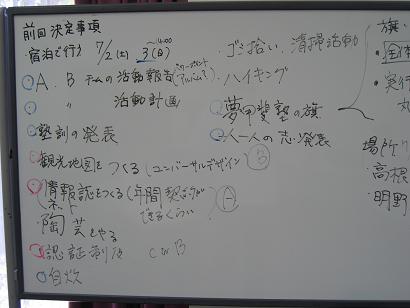 前回決定事項
・宿泊で行う 7/2(土) 3(日) 14:00
A、B チームの活動報告(パワーポイント アルバム?)
〃 活動計画
塾訓の発表
観光地図をつくる(ユニバーサルデザイン) B
情報誌をつくる(年間契約が できるくらい) A
ネット
陶芸をやる
認証制度 C or B
自炊
・ゴミ拾い、清掃活動
・ハイキング
夢甲斐塾の旗
一人一人の志発表
旗
・実行
場所
・高根
・明野